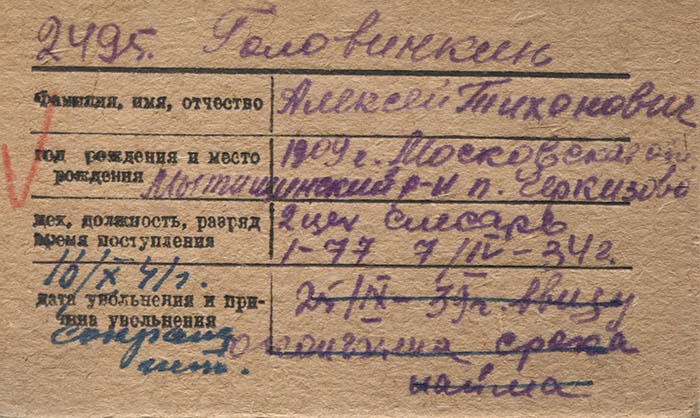 2495. Головинкин
Фамилия, имя, отчество
Алексей Тихонович
год рождения и место рождения
1909 г. Московская обл
Мытищинский р-н п. Черкизово
цех, должность, разряд
2 цех слесарь
время поступления
1-77 7/IV-34г.
10/X 41г.
дата увольнения и при-
чина увольнения
25/IX-39г. Ввиду
окончания срока
найма
сокращ
шт.